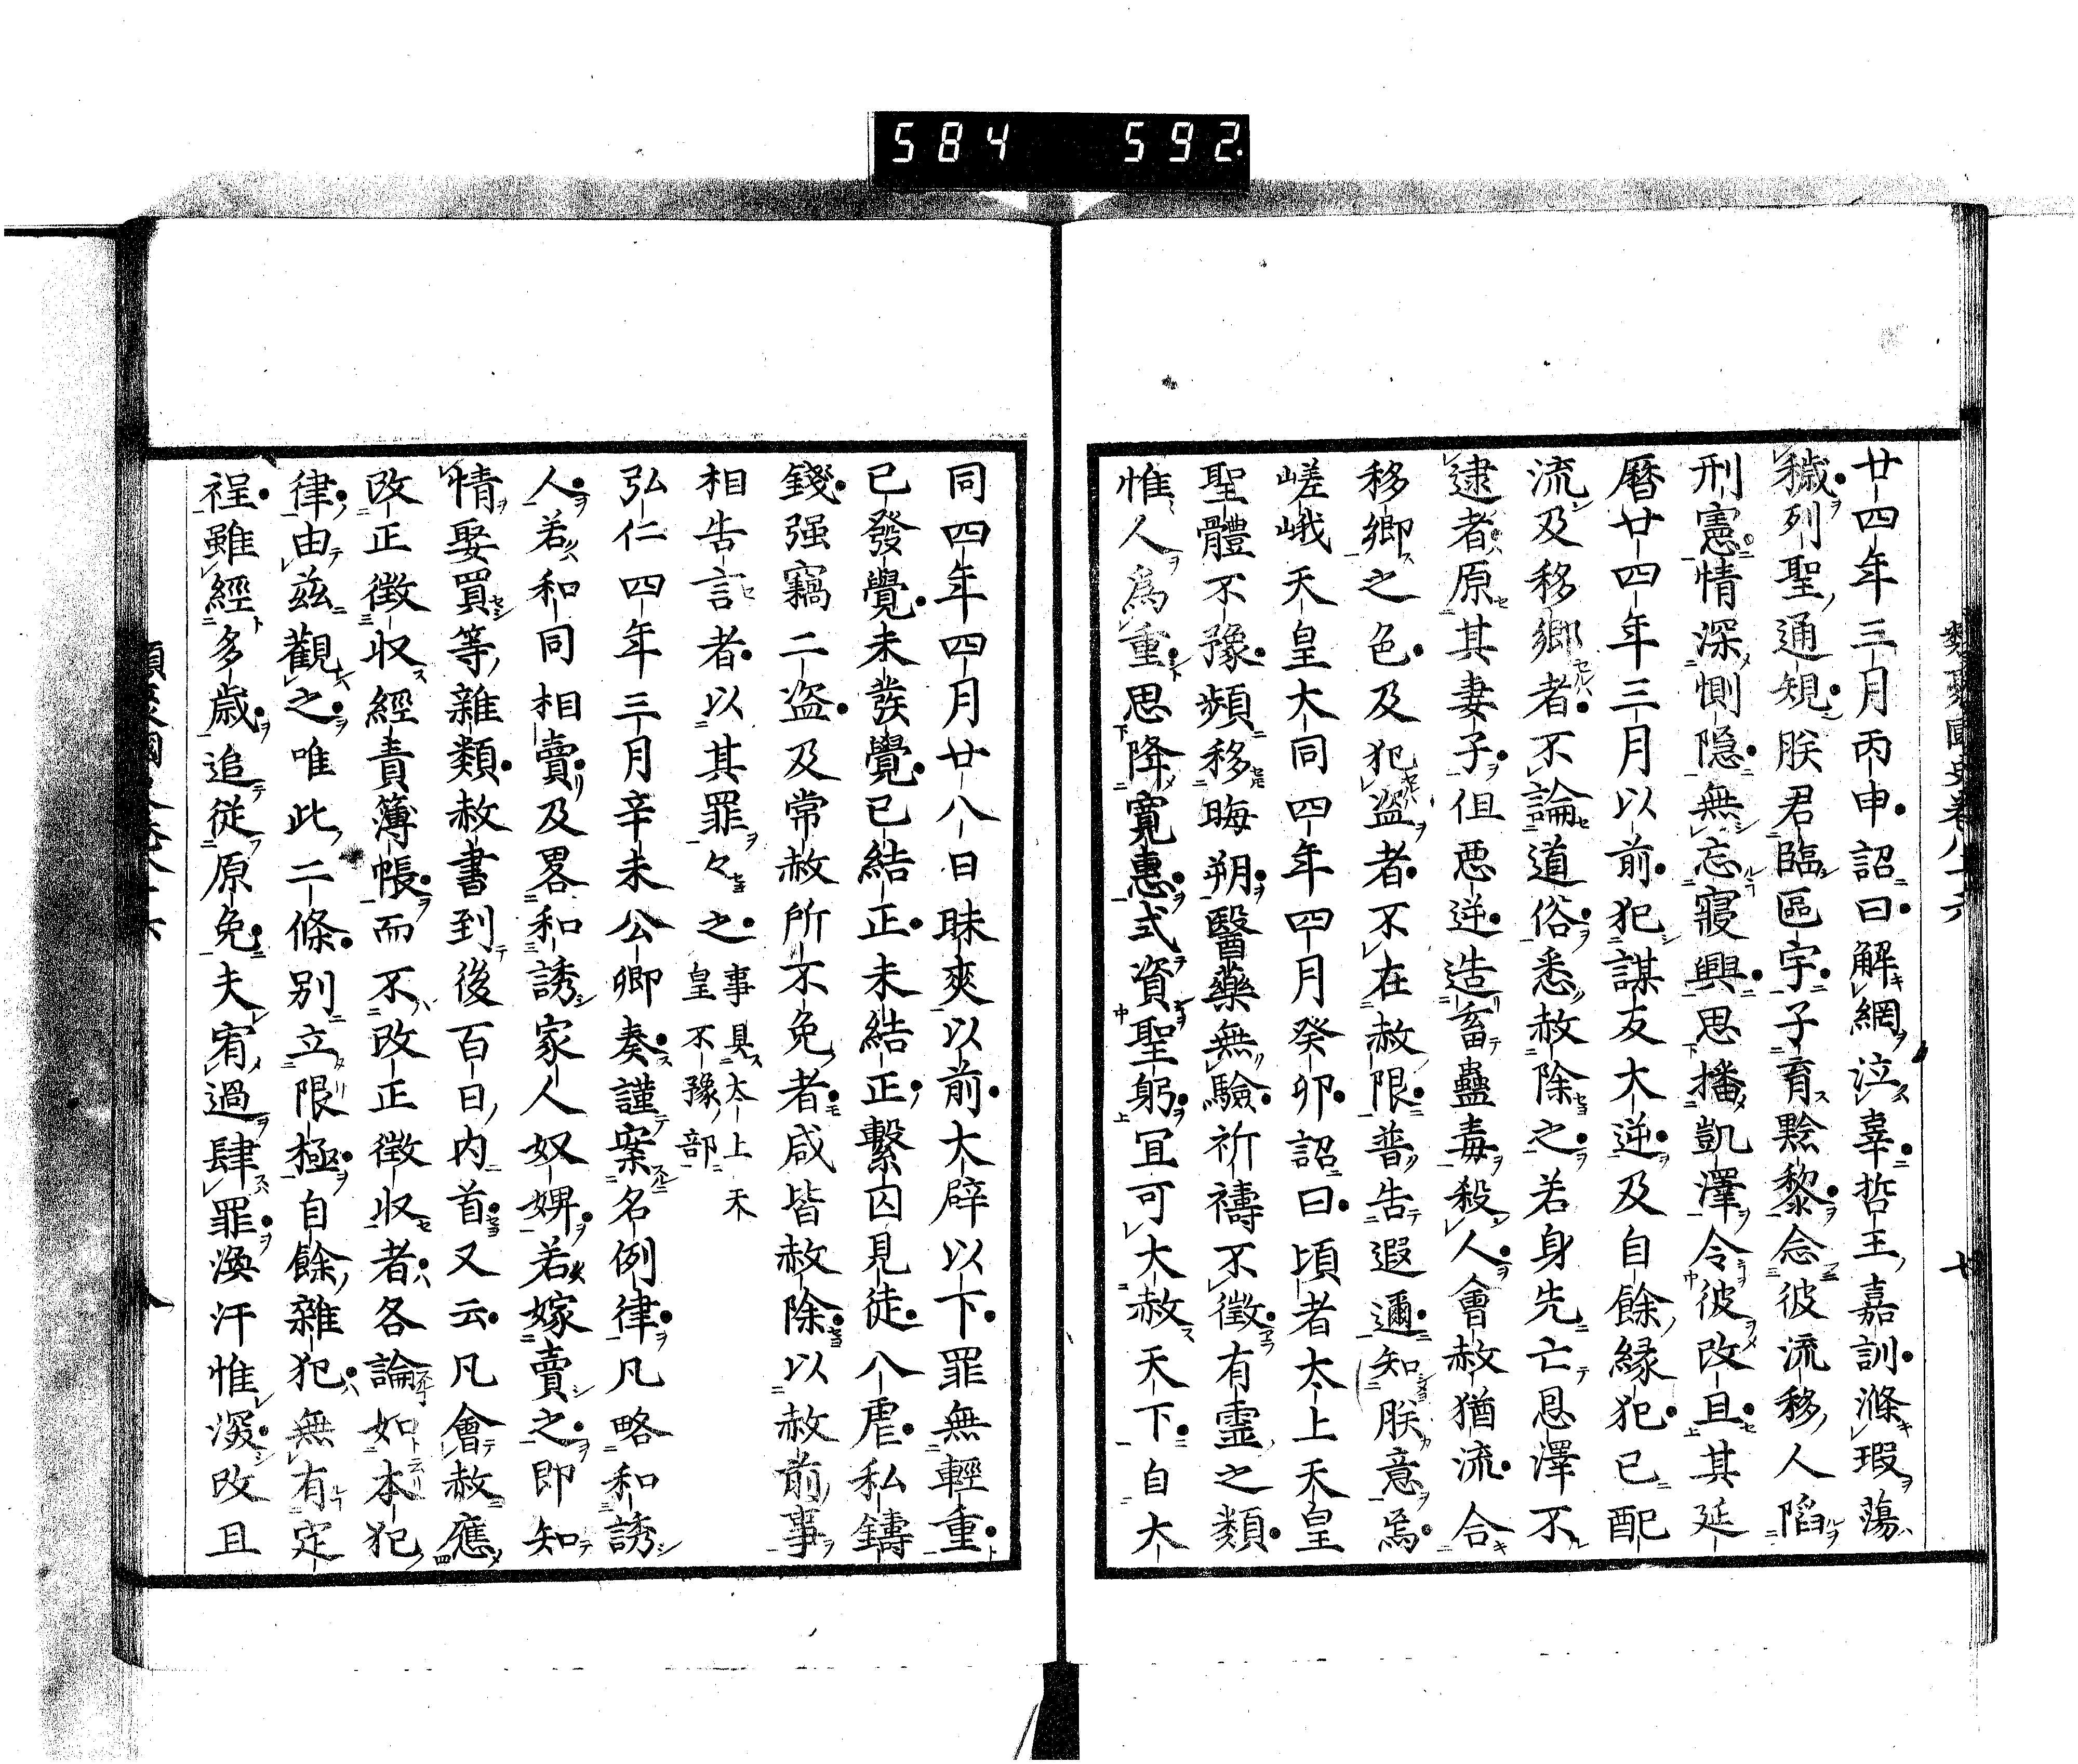 584 592
廿四年三月丙申詔曰解網泣辜哲王嘉訓滌瑕蕩
穢列聖通規朕君臨區宇子育黔黎念彼流移人陷
刑憲情深惻隠無忘寢興思播凱澤令彼改且其延
曆廿四年三月以前犯謀友大逆及自餘緑犯已配
流及移鄉者不論道俗悉赦除之若身先亡恩澤不
逮者原其妻子但惡逆造畜蠱毒殺人會赦猶流合
移鄉之色及犯盗者不在赦限普告遐邇知朕意焉
嵯峨天皇大同四年四月癸卯詔曰頃者太上天皇
聖體不豫頻移晦朔醫藥無驗祈禱不徵有霊之類
惟人為重思降寛惠式資聖躬宜可大赦天下自大
同四年四月廿八日昧爽以前大辟以下罪無輕重
已發覺未發覺已結正未結正繫囚見徒八虐私鑄
錢强竊二盗及常赦所不免者咸皆赦除以赦前事
相告言者以其罪々之事具太上天皇不豫部
弘仁四年三月辛未公卿奏謹案名例律凡略和誘
人若和同相賣及畧和誘家人奴婢若嫁賣之即知
情娶買等雜類赦書到後百日内首又云凡會赦應
改正徴収經責簿帳而不改正徴収者各論如本犯
律由茲觀之唯此二條别立限極自餘雜犯無有定
程雖經多歲追從原免夫宥過肆罪渙汗惟深改且